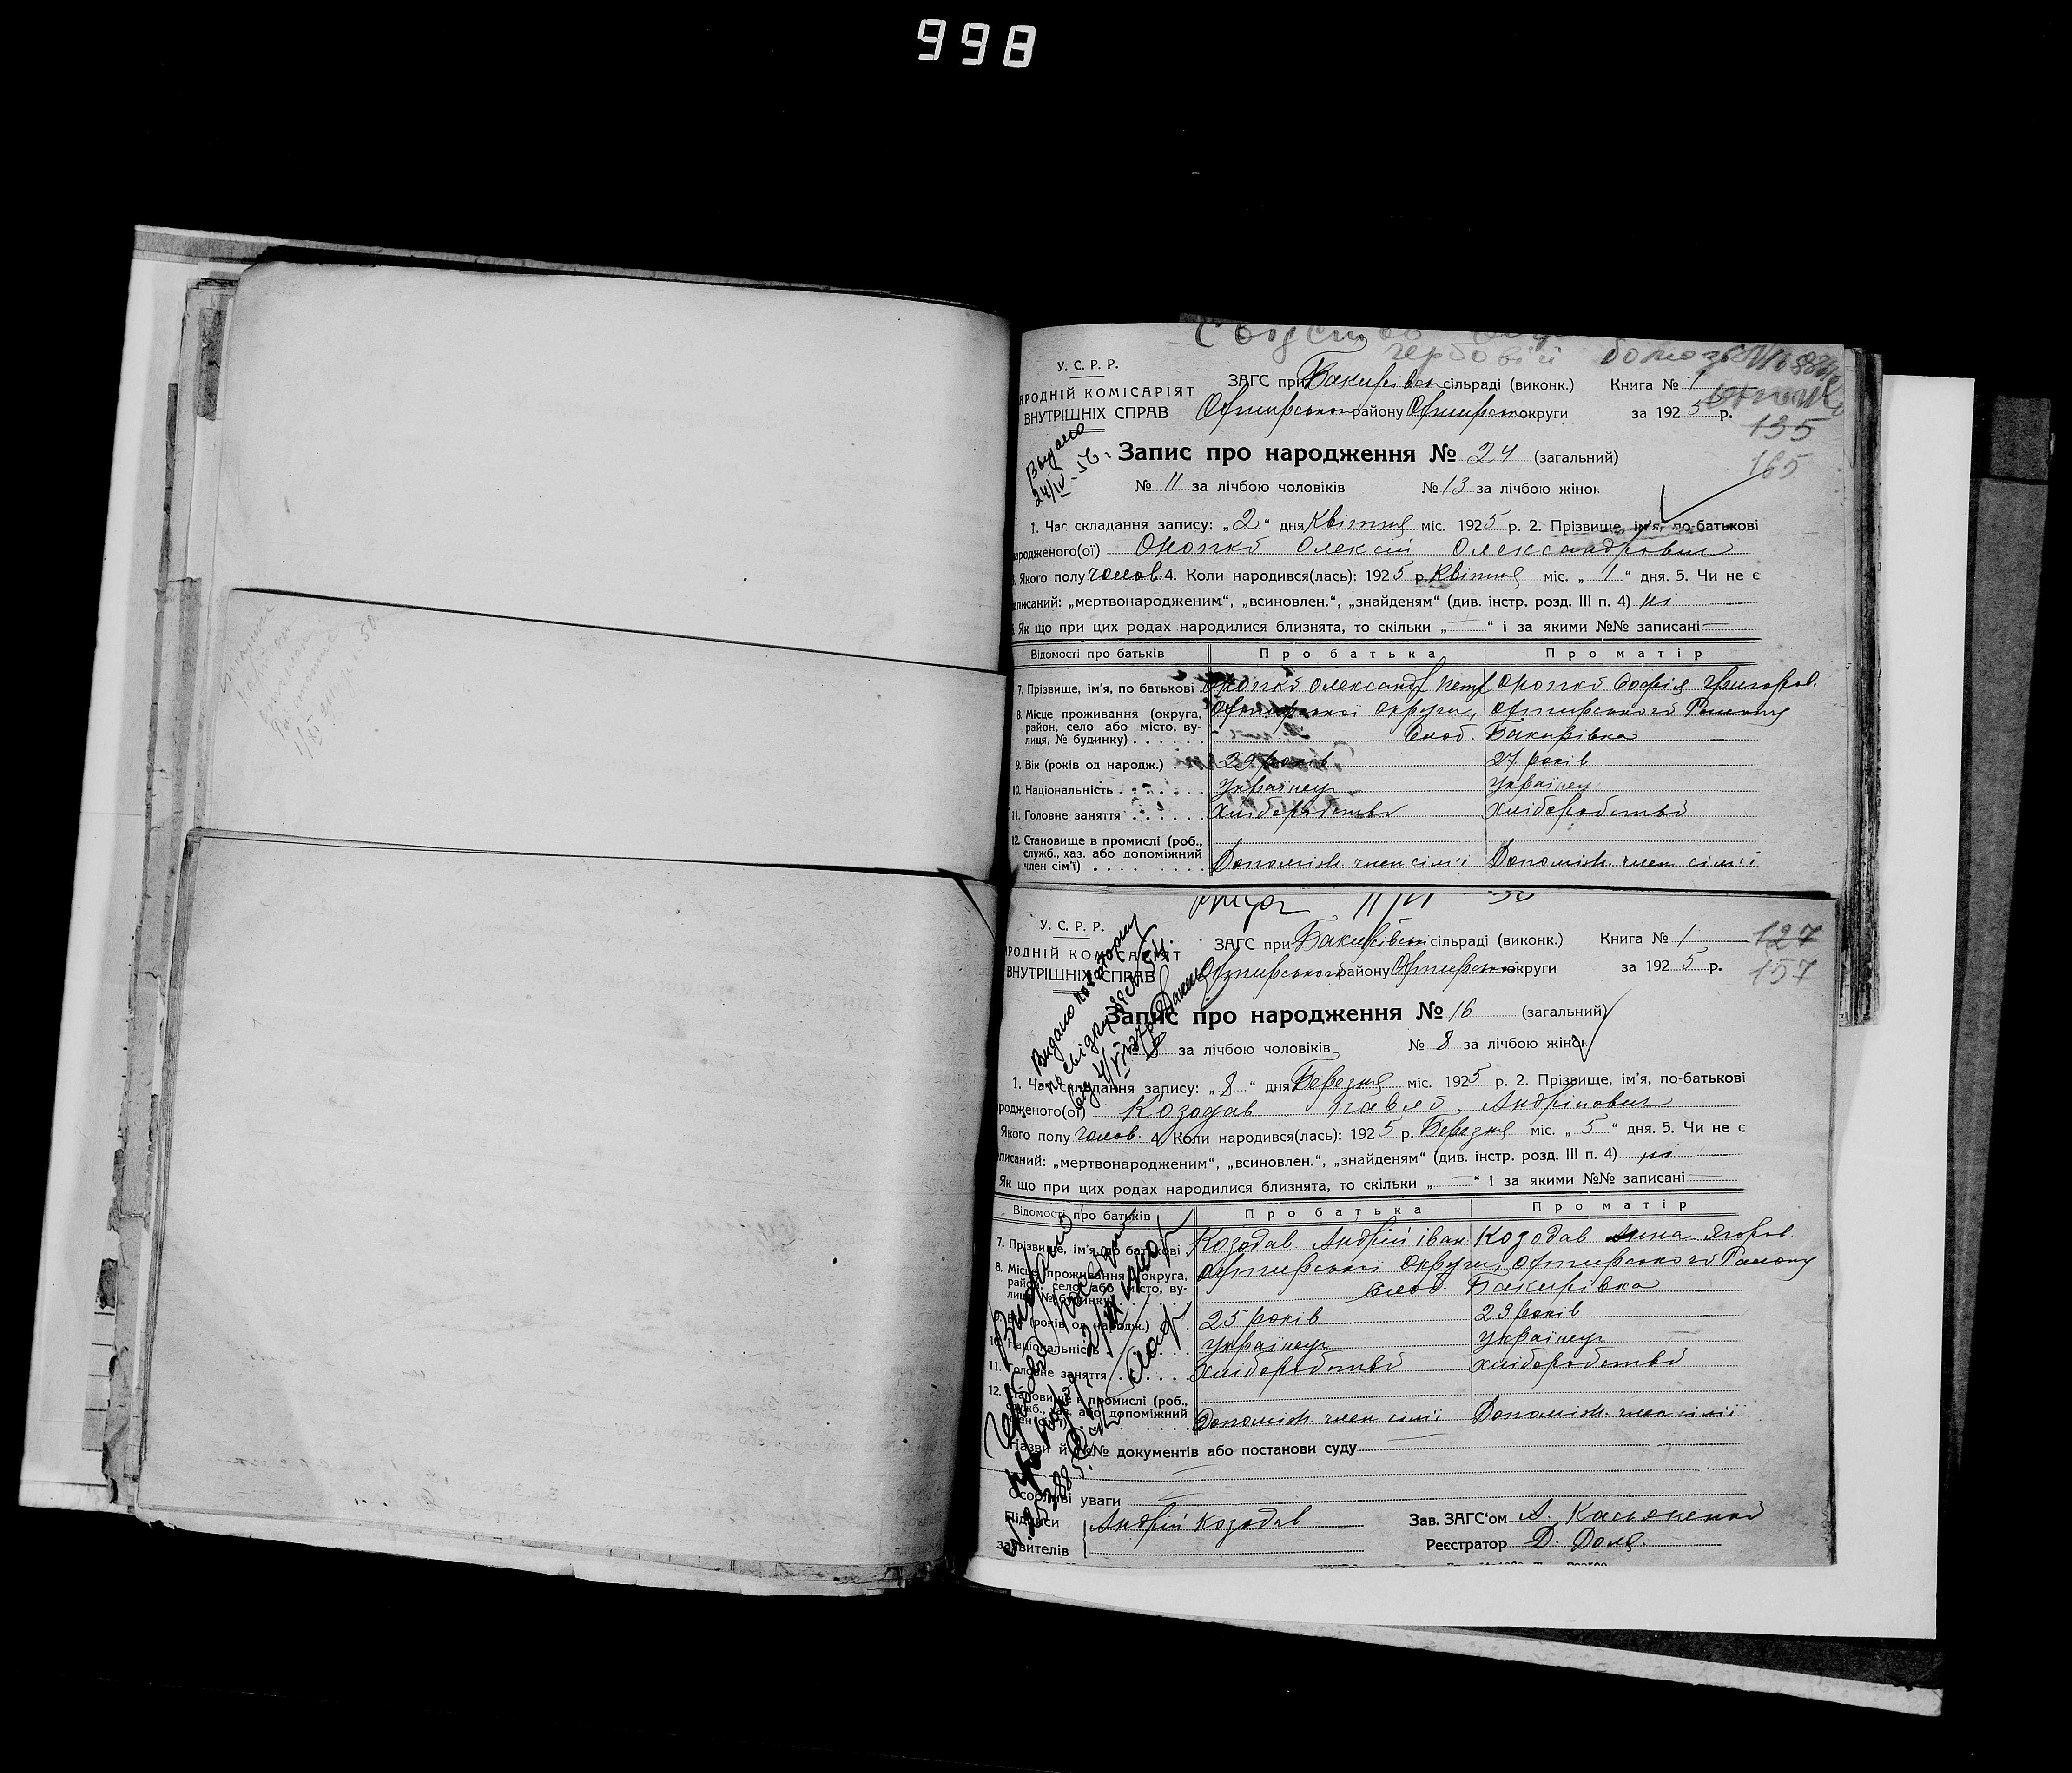 998
У. С. Р. Р.
АРОДНІЙ КОМІСАРІЯТ
ВНУТРІШНІХ СПРАВ
гербовій
ЗАГС при Бакирівсь сільраді (виконк.) Книга № 1
Охтирського району Охтирської округи за 1925 р.
135
165
Видано
24/IV-56.
Запис про народження № 24 (загальний)
№ 11 за лічбою чоловіків № 13 за лічбою жінок
1. Час складання запису: „2“ дня Квітня міс. 1925 р. 2. Прізвище, ім'я, по-батькові
народженого(ої) Олексій Олександрович
3. Якого полу чолов. 4. Коли народився(лась): 1925 р. Квітня міс. „1“ дня. 5. Чи не є
записаний: „мертвонародженим“, „всиновлен.“, „знайденям“ (див. інстр. розд. III п. 4) ні
Як що при цих родах народилися близнята, то скільки „—“ і за якими №№ записані —
Відомості про батьків Про батька Про матір
7. Прізвище, ім'я, по батькові Олександр Петр Софія Григоров.
8. Місце проживання (округа, район, село або місто, вулиця, № будинку) Охтирської округи, Охтирського Району
Слоб. Бакирівка
9. Вік (років од народж.) 29 років 27 років
10. Національність Українец Українец
11. Головне заняття Хліборобство Хліборобство
12. Становище в промислі (роб., служб., хаз. або допоміжний член сім'ї) Допоміж. член сім'ї Допоміж. член сім'ї
У. С. Р. Р.
РОДНІЙ КОМІСАРІЯТ
ВНУТРІШНІХ СПРАВ
ЗАГС при Бакирівськ сільраді (виконк.) Книга № 1
127
Охтирського району Охтирської округи за 1925 р.
157
Запис про народження № 16 (загальний)
за лічбою чоловіків № 8 за лічбою жінок
1. Час складання запису: „8“ дня Березня міс. 1925 р. 2. Прізвище, ім'я, по-батькові
родженого(ої) Козодав Павло Андрійович
Якого полу чолов. 4. Коли народився(лась): 1925 р. Березня міс. „5“ дня. 5. Чи не є
писаний: „мертвонародженим“, „всиновлен.“, „знайденям“ (див. інстр. розд. III п. 4) ні
Як що при цих родах народилися близнята, то скільки „—“ і за якими №№ записані —
Відомості про батьків Про батька Про матір
7. Прізвище, ім'я, по батькові Козодав Андрій Іван Козодав Анна Ягоров.
8. Місце проживання (округа, район, село або місто, вулиця, № будинку) Охтирської округи, Охтирського Району
Слоб. Бакирівка
9. Вік (років од народж.) 25 років 23 років
10. Національність Українец Українец
11. Головне заняття Хліборобство Хліборобство
12. Становище в промислі (роб., служб., хаз. або допоміжний член сім'ї) Допоміж. член сім'ї Допоміж. член сім'ї
Назви й №№ документів або постанови суду
Особливі уваги
Підписи заявителів Андрій Козодав
Зав. ЗАГС'ом А. Касьяненко
Реєстратор Д. Доля.